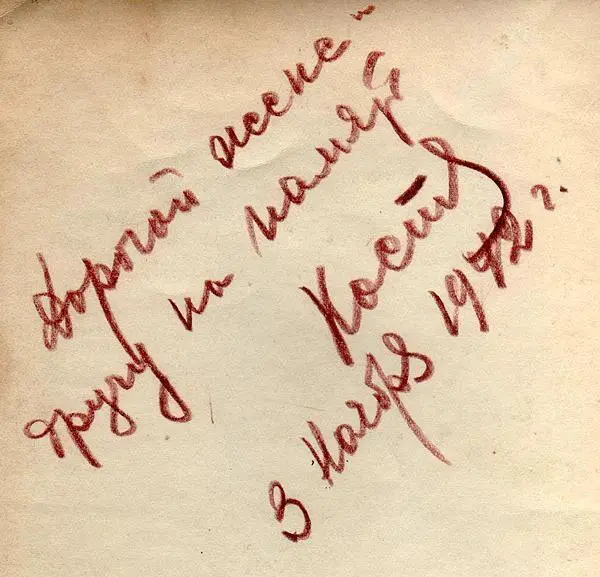 Дорогой жене -
другу на память
Костя
3 Ноября 1972 г.